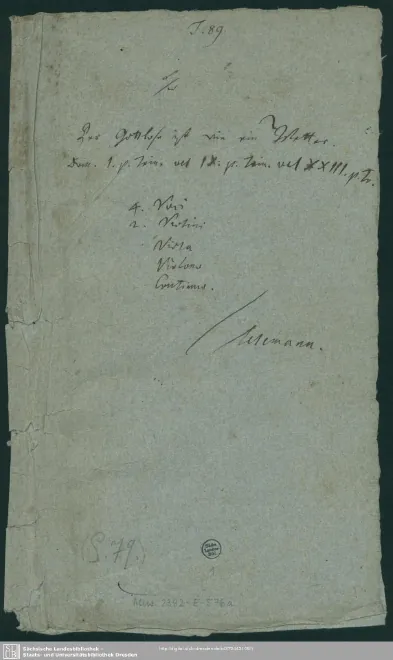 J. 89
Der Gottlose ist wie ein Wetter.
Dom. 1. p. Trin. vel IX. p. Trin. vel XXIII. p. Tr.
4. Voci
2. Violini
Viola
Violono
Continuo.
Telemann.
(S. 79.)
Mus. 2392-E-576a
Sächsische Landesbibliothek -
Staats- und Universitätsbibliothek Dresden